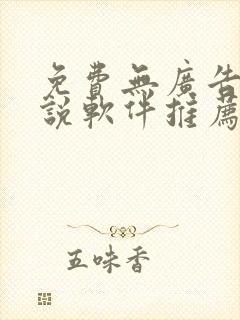 免費無廣告
說軟件推薦
五味香